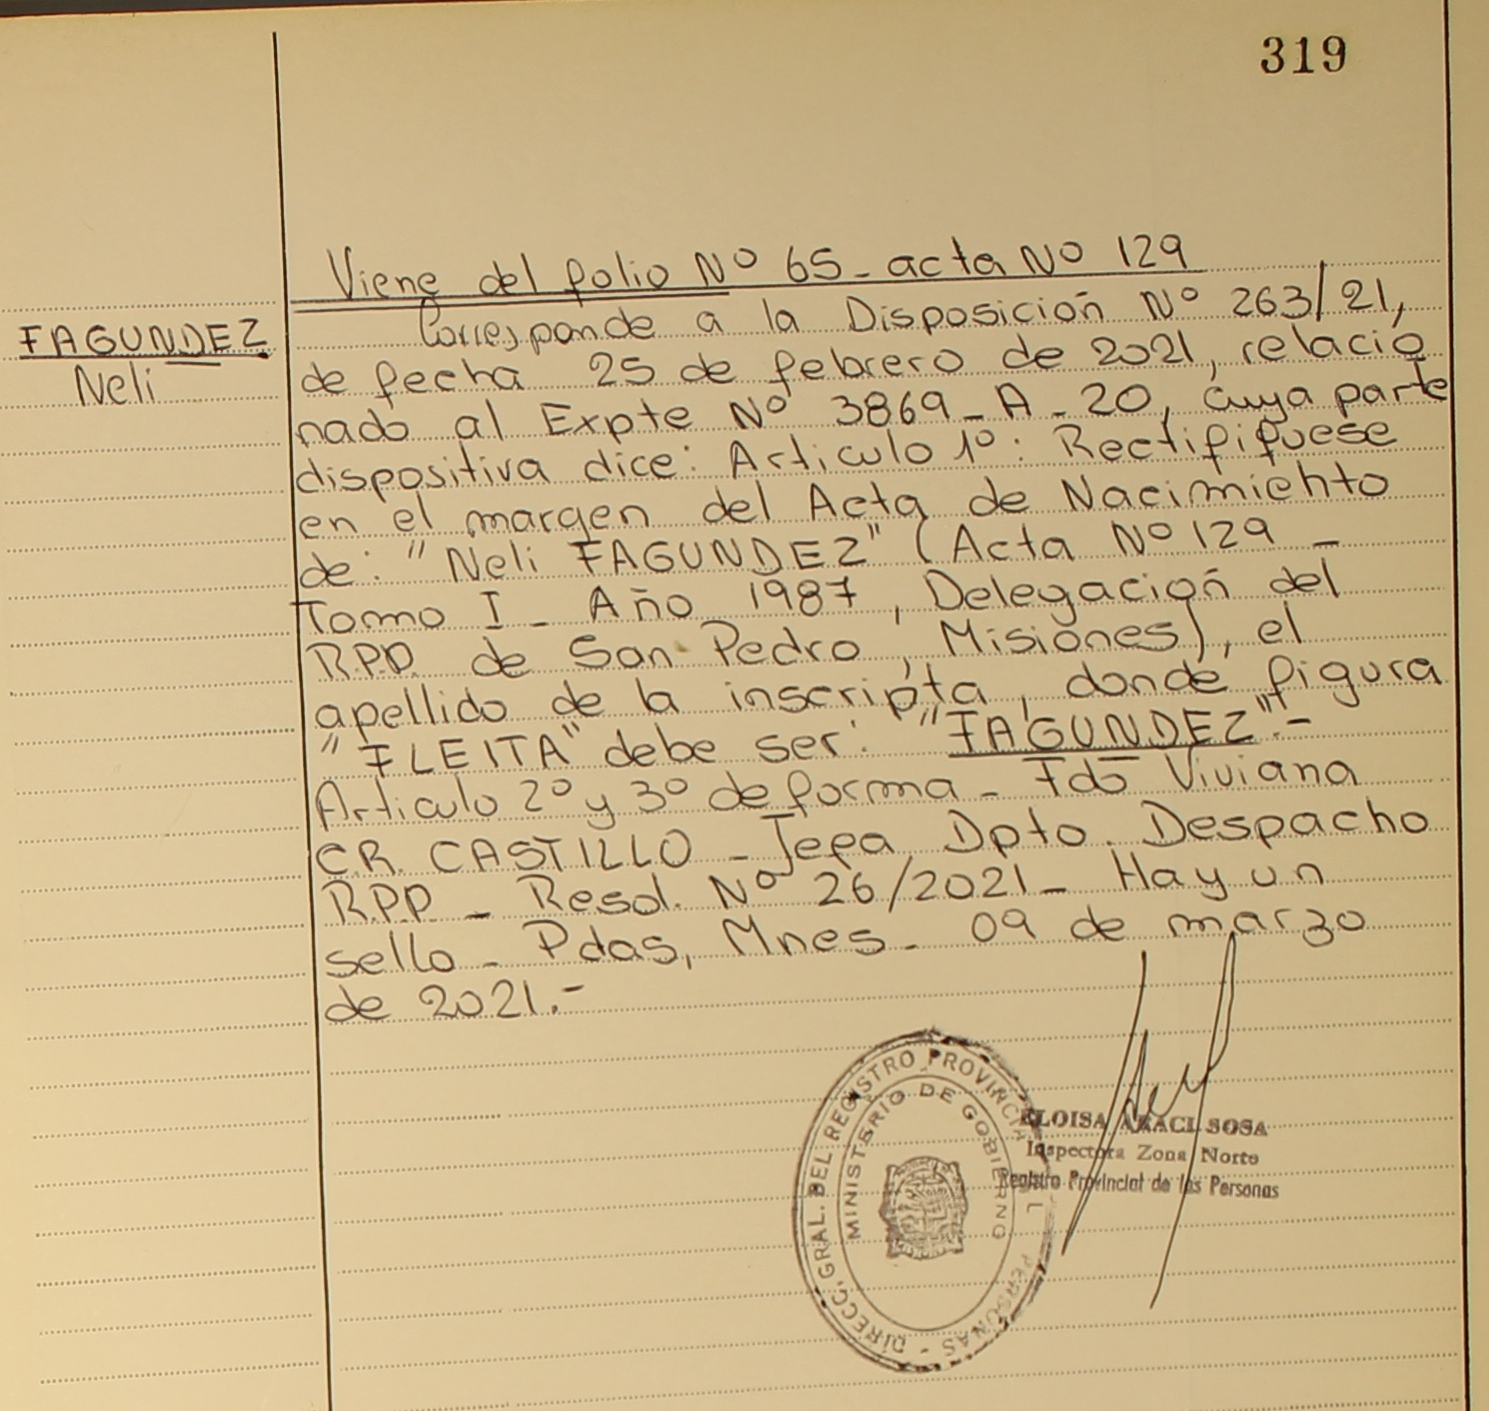 319
Viene del folio Nº 65 - acta Nº 129
FAGUNDEZ
Neli
Corresponde a la Disposición Nº 263/21,
de fecha 25 de febrero de 2021, relacio
nado al Expte Nº 3869 - A - 20, cuya parte
dispositiva dice: Articulo 1º: Rectififuese
en el margen del Acta de Nacimiento
de: "Neli FAGUNDEZ" (Acta Nº 129 -
Tomo I - Año 1987, Delegación del
R.P.P. de San Pedro, Misiones), el
apellido de la inscripta, donde figura
"FLEITA" debe ser: "FAGUNDEZ".-
Articulo 2º y 3º de forma - Fdo Viviana
C.R. CASTILLO - Jefa Dpto. Despacho
R.P.P - Resol. Nº 26/2021 - Hay un
sello - Pdas, Mnes - 09 de marzo
de 2021.-
DIRECC. GRAL. DEL REGISTRO PROVINCIAL PERSONAS
MINISTERIO DE GOBIERNO
ELOISA ARACI SOSA
Inspectora Zona Norte
Registro Provincial de las Personas